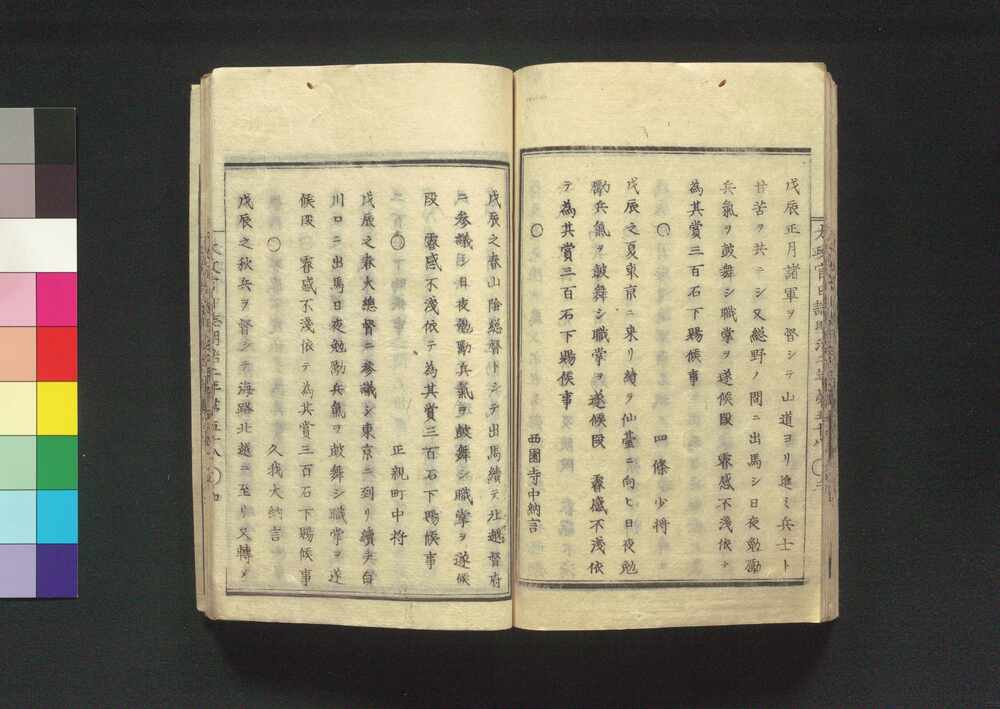 戊辰正月諸軍ヲ督シテ山道ヨリ進ミ兵士ト
甘苦ヲ共テシ又総野ノ間ニ出馬シ日夜勉勵
兵氣ヲ鼓舞シ職掌ヲ遂候段　叡感不淺依テ
為其賞三百石下賜候事
〇　四條少将
戊辰之夏東京ニ来リ續テ仙臺ニ向ヒ日夜勉
勵兵氣ヲ鼓舞シ職掌ヲ遂候段　叡感不淺依
テ為其賞三百石下賜候事
〇　西園寺中納言
戊辰之春山陰総督トシテ出馬續テ北越督府
ニ參議シ日夜勉勵兵氣ヲ鼓舞シ職掌ヲ遂候
段　叡感不淺依テ為其賞三百石下賜候事
〇　正親町中将
戊辰之春大總督ニ參議シ東京ニ到リ續テ白
川口ニ出馬日夜勉勵兵氣ヲ鼓舞シ職掌ヲ遂
候段　叡感不淺依テ為其賞三百石下賜候事
〇　久我大納言
戊辰之秋兵ヲ督シテ海路北越ニ至リ又轉シ